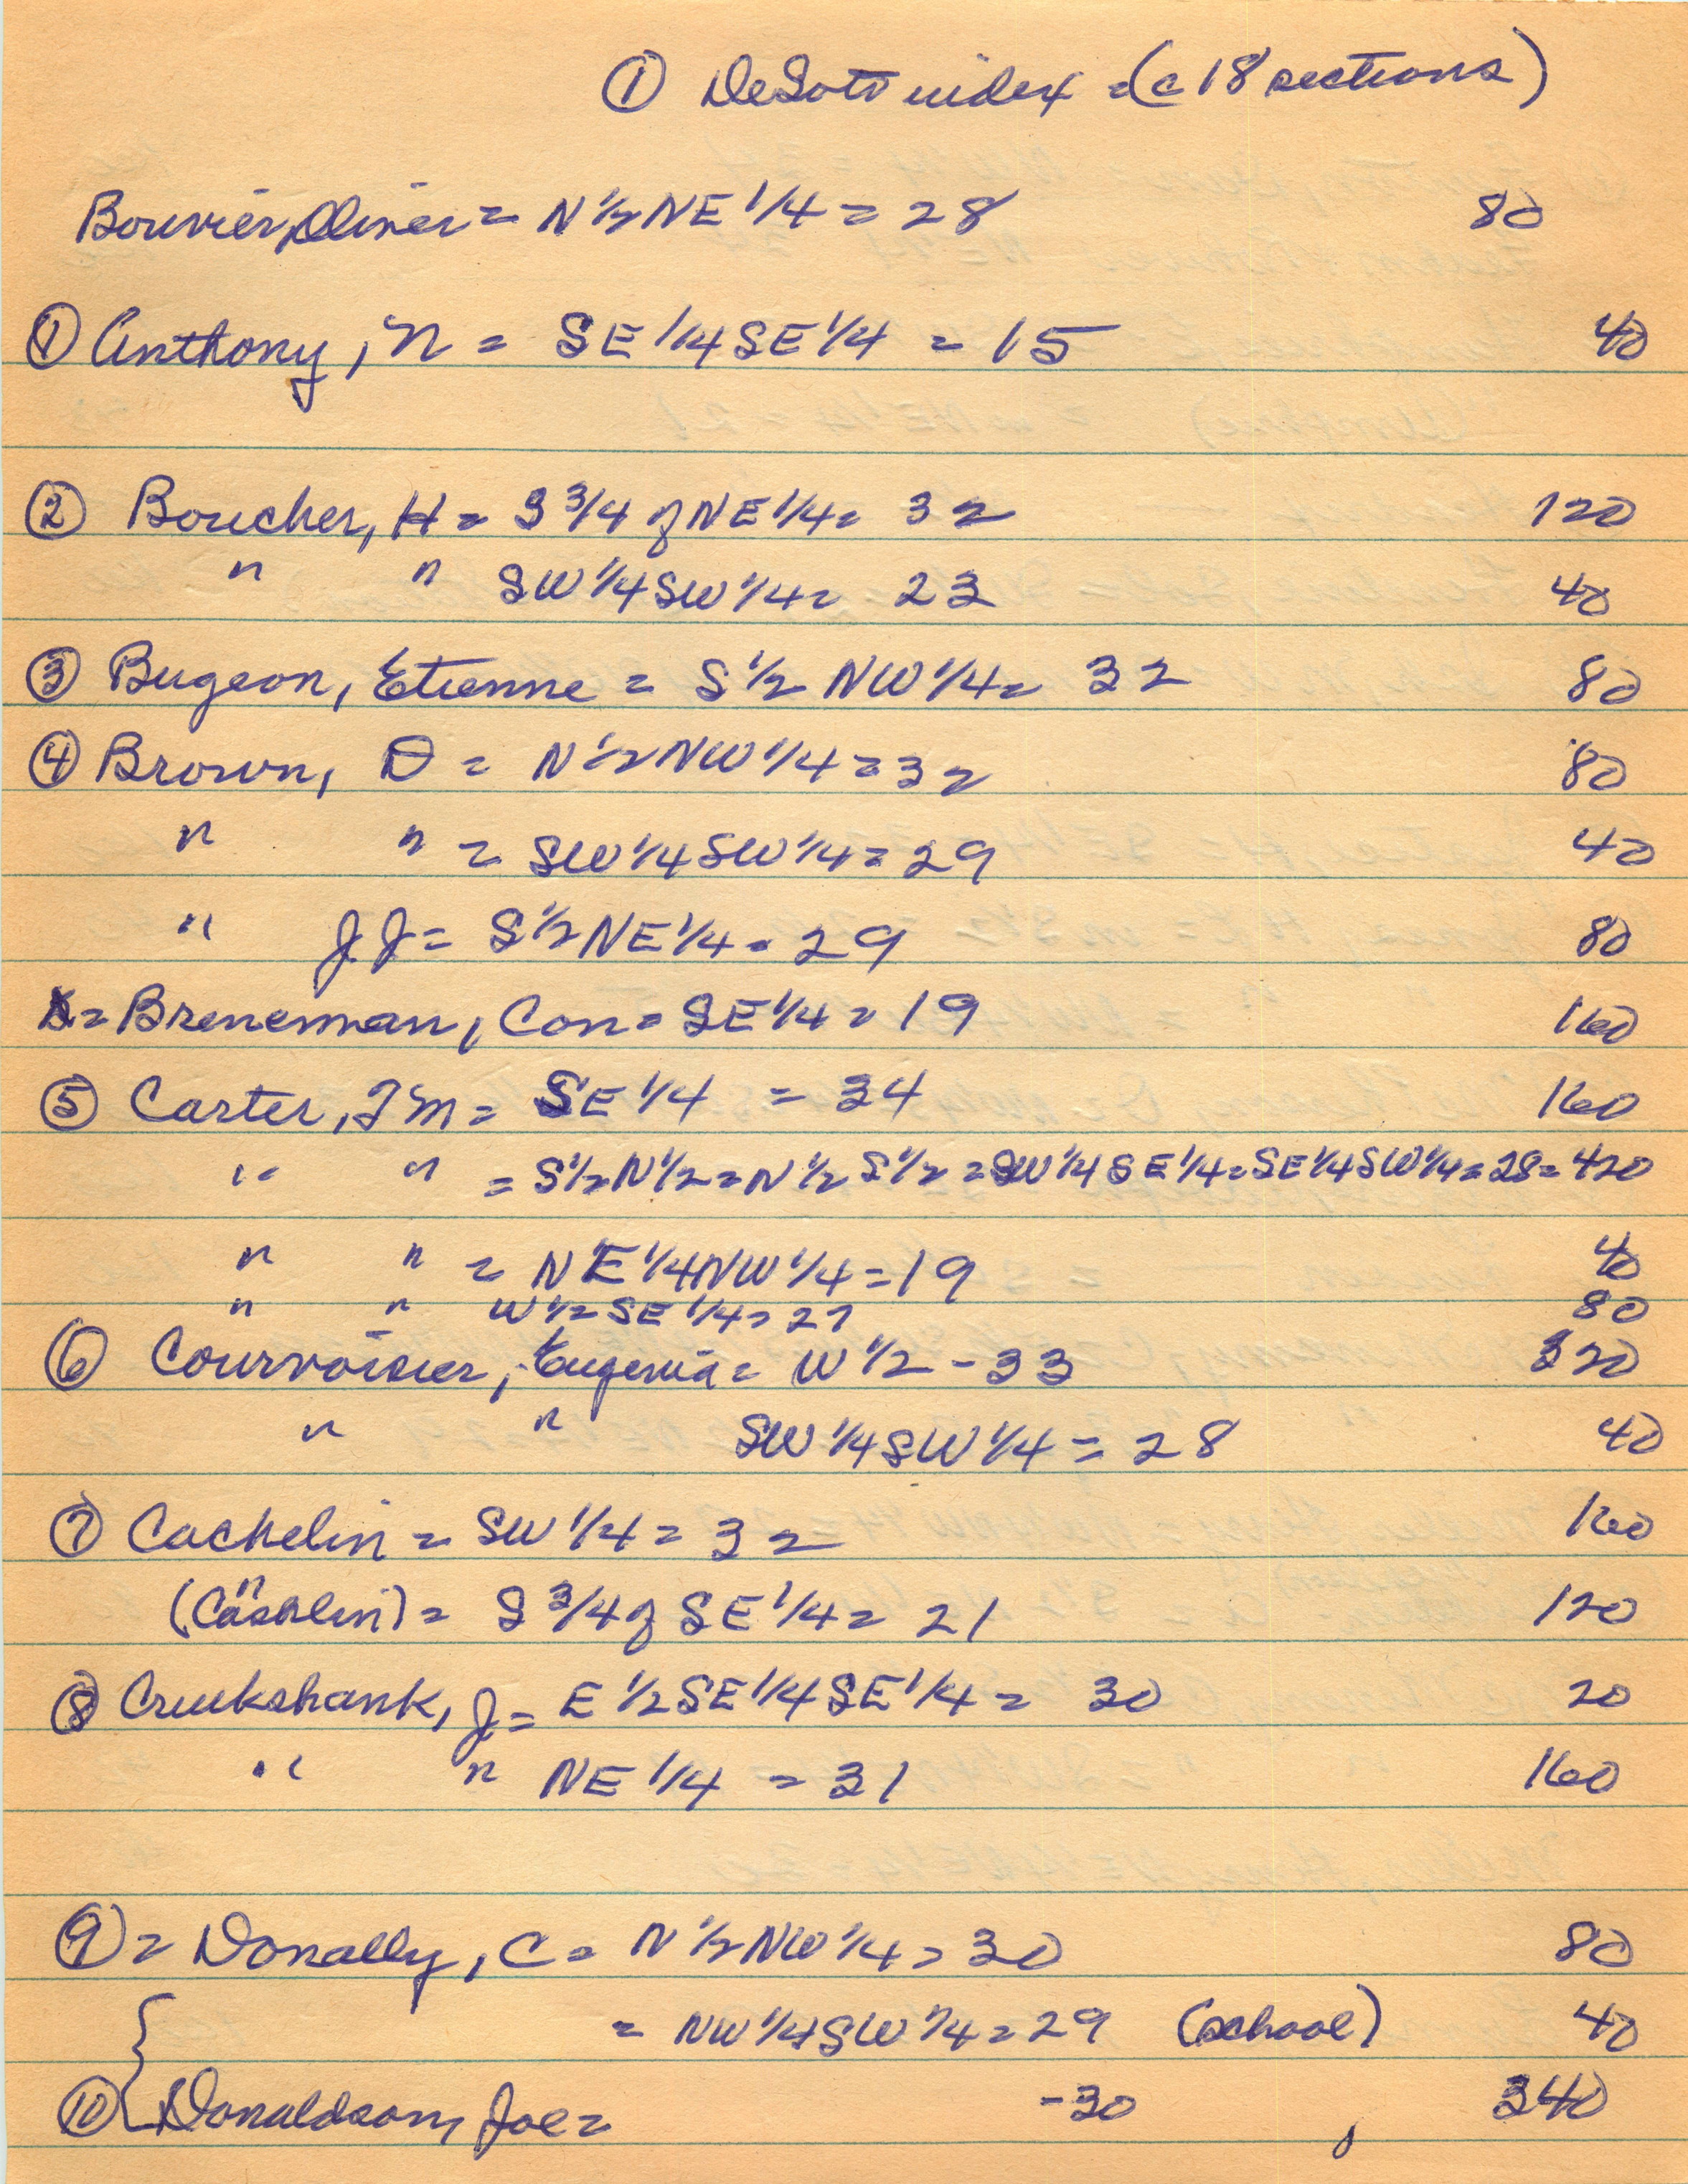 ① DeSoto index = (c 18 sections)
Bouvier, Oliver = N 1/2 NE 1/4 = 28 80
① Anthony, N = SE 1/4 SE 1/4 = 15 40
② Boucher, H = S 3/4 of NE 1/4 = 32 120
" " SW 1/4 SW 1/4 = 23 40
③ Bugeon, Etienne = S 1/2 NW 1/4 = 32 80
④ Brown, D = N 1/2 NW 1/4 = 32 80
" " = SW 1/4 SW 1/4 = 29 40
" J J = S 1/2 NE 1/4 = 29 80
= Breneman, Con = SE 1/4 = 19 160
⑤ Carter, J M = SE 1/4 = 34 160
" " = S 1/2 N 1/2 = N 1/2 S 1/2 = SW 1/4 SE 1/4 = SE 1/4 SW 1/4 = 28 = 420
" " = NE 1/4 NW 1/4 = 19 40
" " W 1/2 SE 1/4 = 27 80
⑥ Courvoisier, Eugenia = W 1/2 - 33 320
" " SW 1/4 SW 1/4 = 28 40
⑦ Cachelin = SW 1/4 = 32 160
(Cashlin) = S 3/4 of SE 1/4 = 21 120
⑧ Cruikshank, J = E 1/2 SE 1/4 SE 1/4 = 30 20
" " NE 1/4 = 31 160
⑨ = Donally, C = N 1/2 NW 1/4 = 30 80
= NW 1/4 SW 1/4 = 29 (school) 40
⑩ Donaldson, Joe = - 30 340